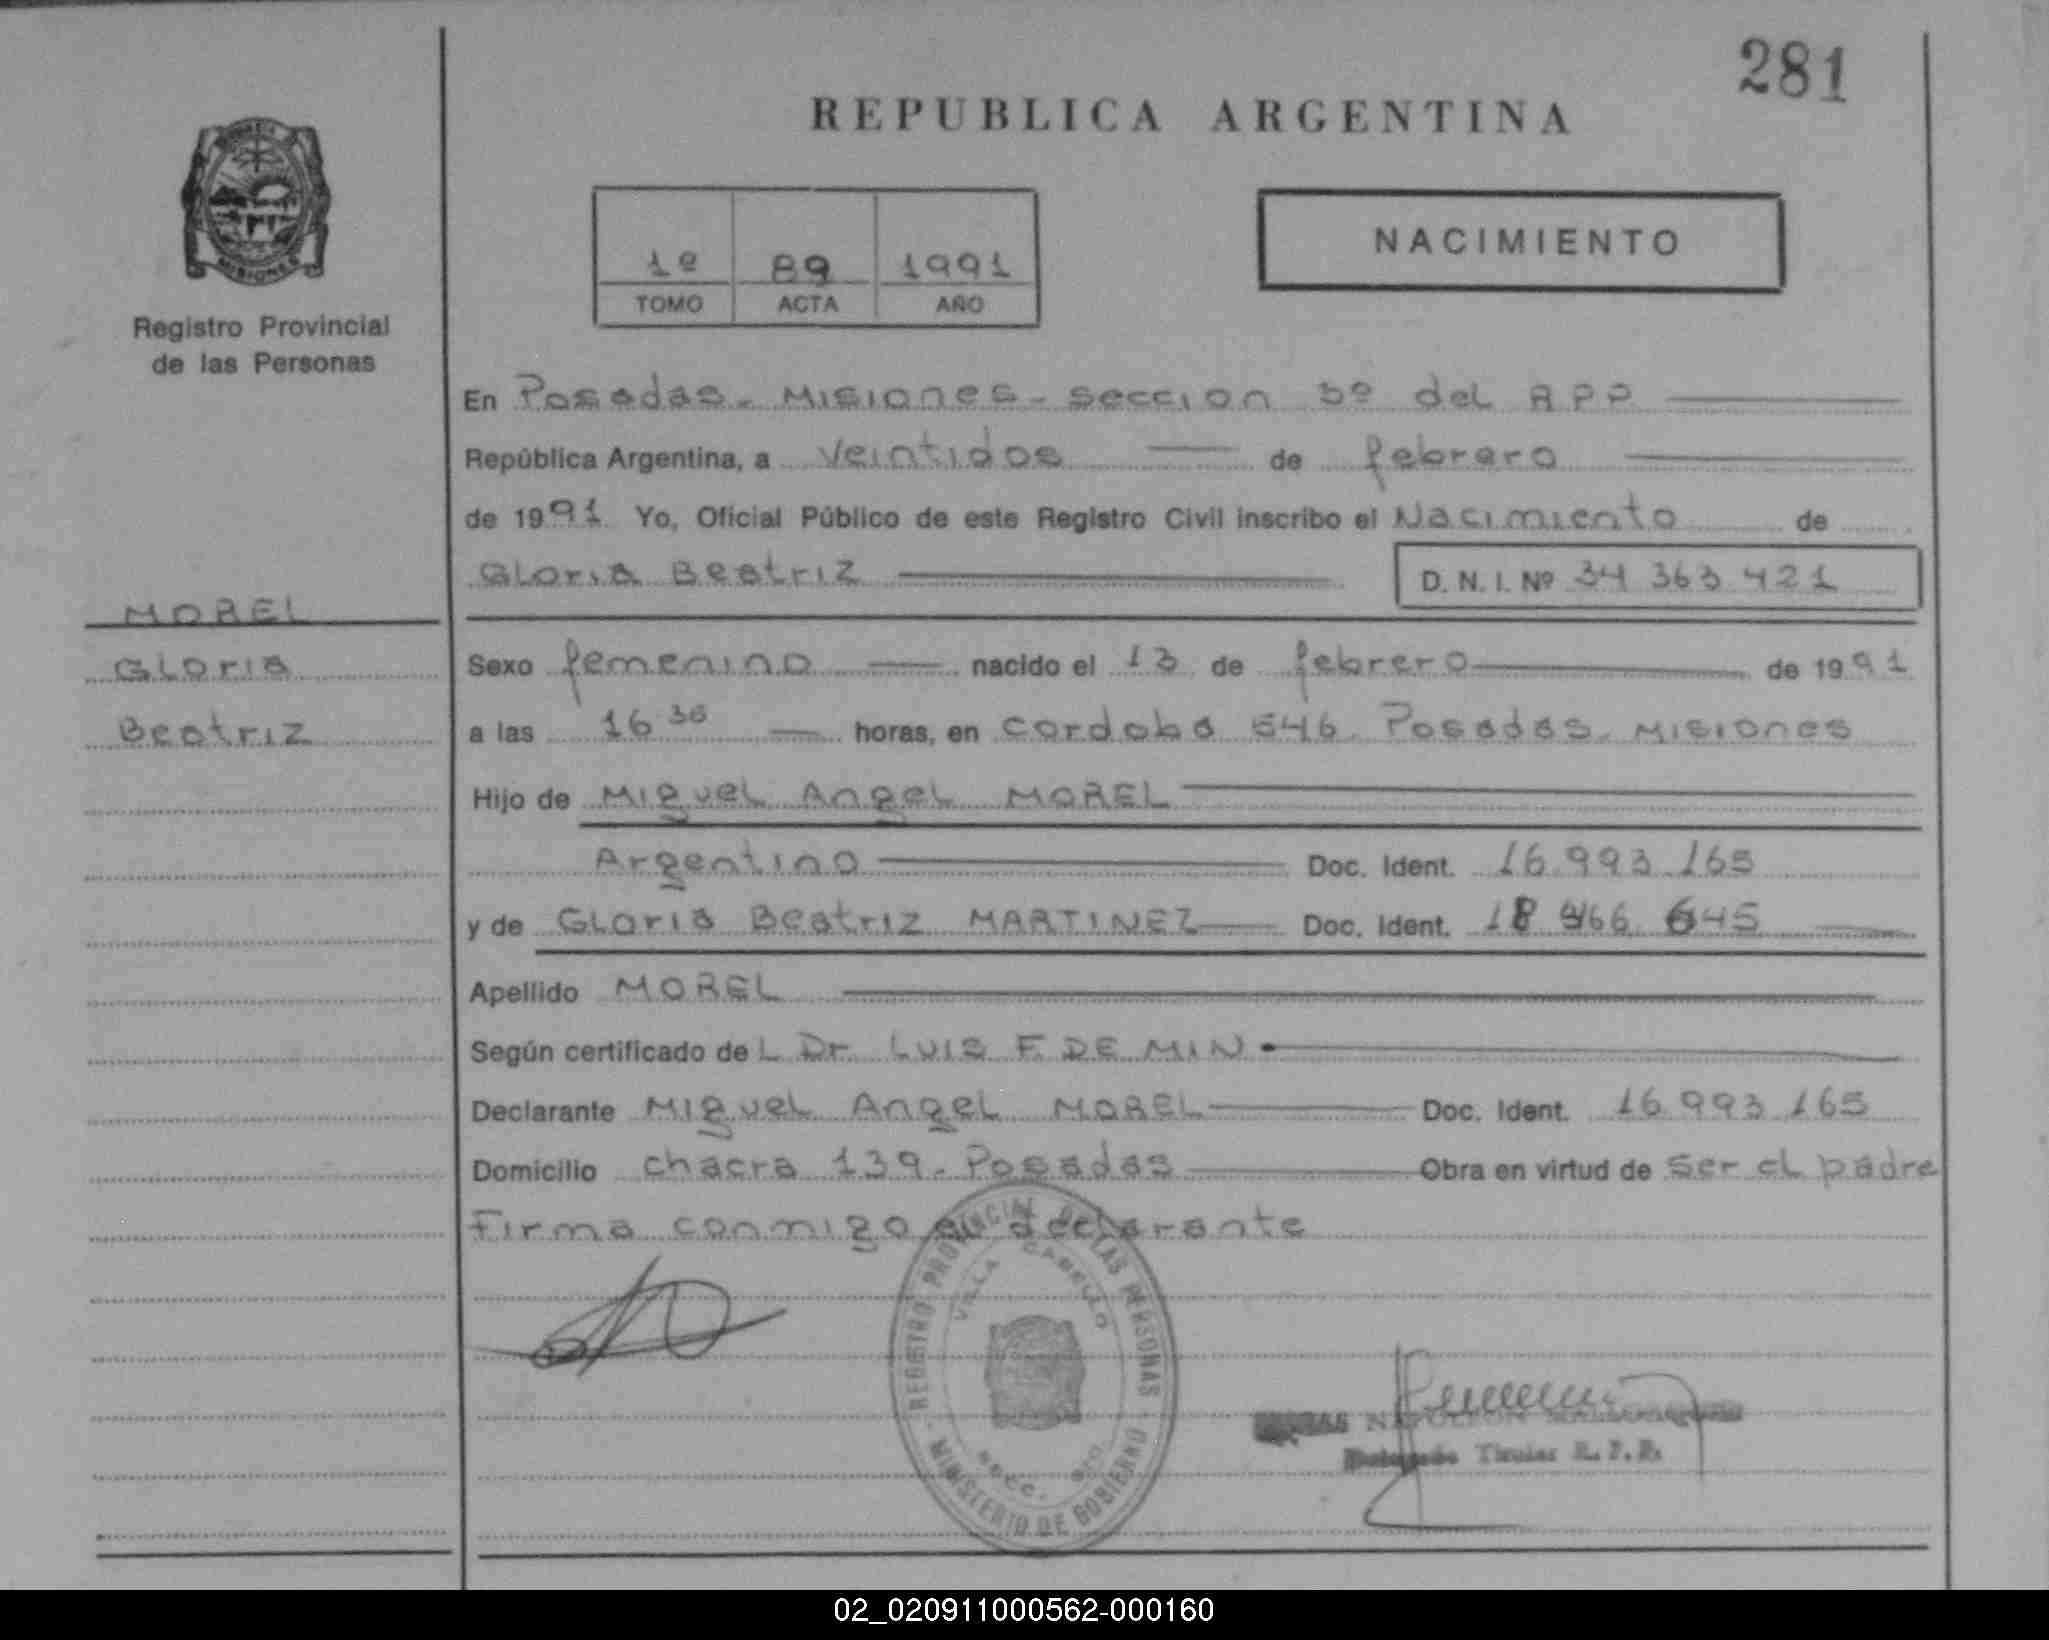 281
REPUBLICA ARGENTINA
MISIONES
Registro Provincial
de las Personas
1º 89 1991
TOMO ACTA AÑO
NACIMIENTO
En Posadas - Misiones - seccion 3º del RPP
República Argentina, a Veintidos de febrero
de 1991 Yo, Oficial Público de este Registro Civil inscribo el Nacimiento de
Gloria Beatriz D. N. I. Nº 34 363 421
MOREL
Gloria
Beatriz
Sexo femenino nacido el 13 de febrero de 1991
a las 16 30 horas, en Cordoba 546 Posadas - Misiones
Hijo de Miguel Angel MOREL
Argentino Doc. Ident. 16 993 165
y de Gloria Beatriz MARTINEZ Doc. Ident. 18 466 645
Apellido MOREL
Según certificado de L Dr. LUIS F. DE MIN
Declarante Miguel Angel MOREL Doc. Ident. 16 993 165
Domicilio chacra 139 - Posadas Obra en virtud de ser el padre
Firma conmigo el declarante
REGISTRO PROVINCIAL DE LAS PERSONAS
VILLA CABELLO
SECC.
MINISTERIO DE GOBIERNO
NAPOLEON
Titular R. P. P.
02_020911000562-000160